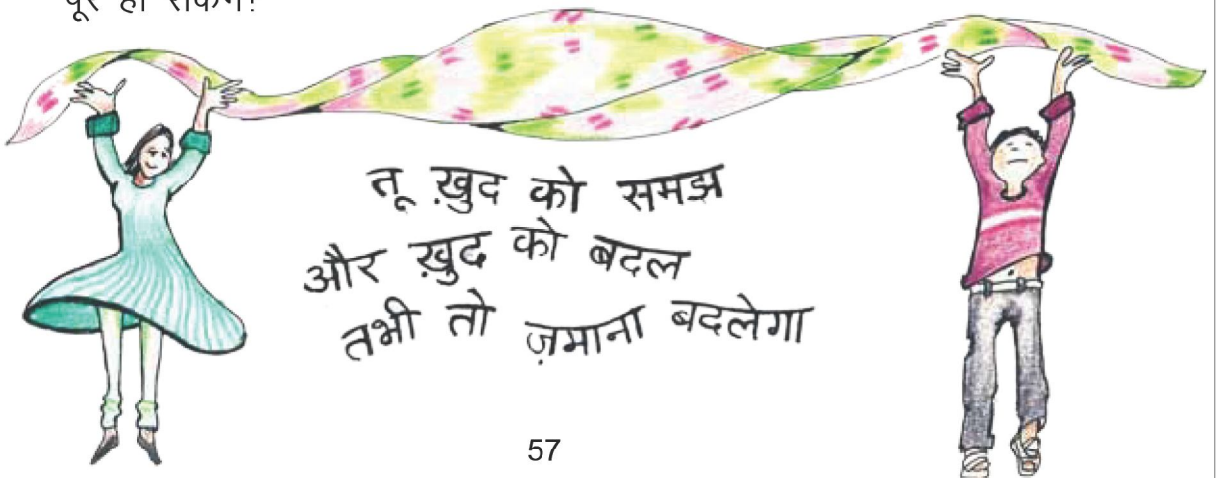 पूरे हो सकेंगे?
तू ख़ुद को समझ
और ख़ुद को बदल
तभी तो ज़माना बदलेगा
57